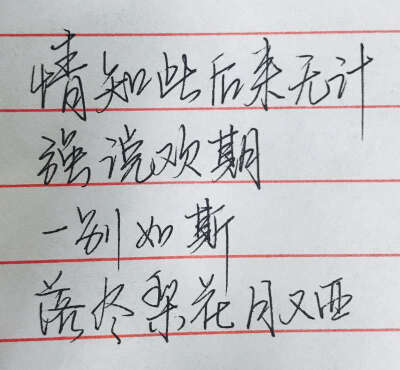 情知此后来无计
强说欢期
一别如斯
落尽梨花月又西